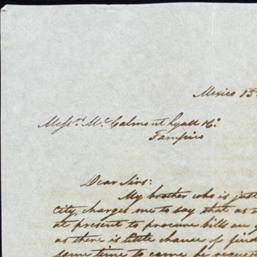 Mexico 13
Mess.rs McCalmont Lyall &
Tampico
Dear Sirs:
My brother who is just
City, charges me to say that as
at present to procure bills
as there is little chance of
some time to come he